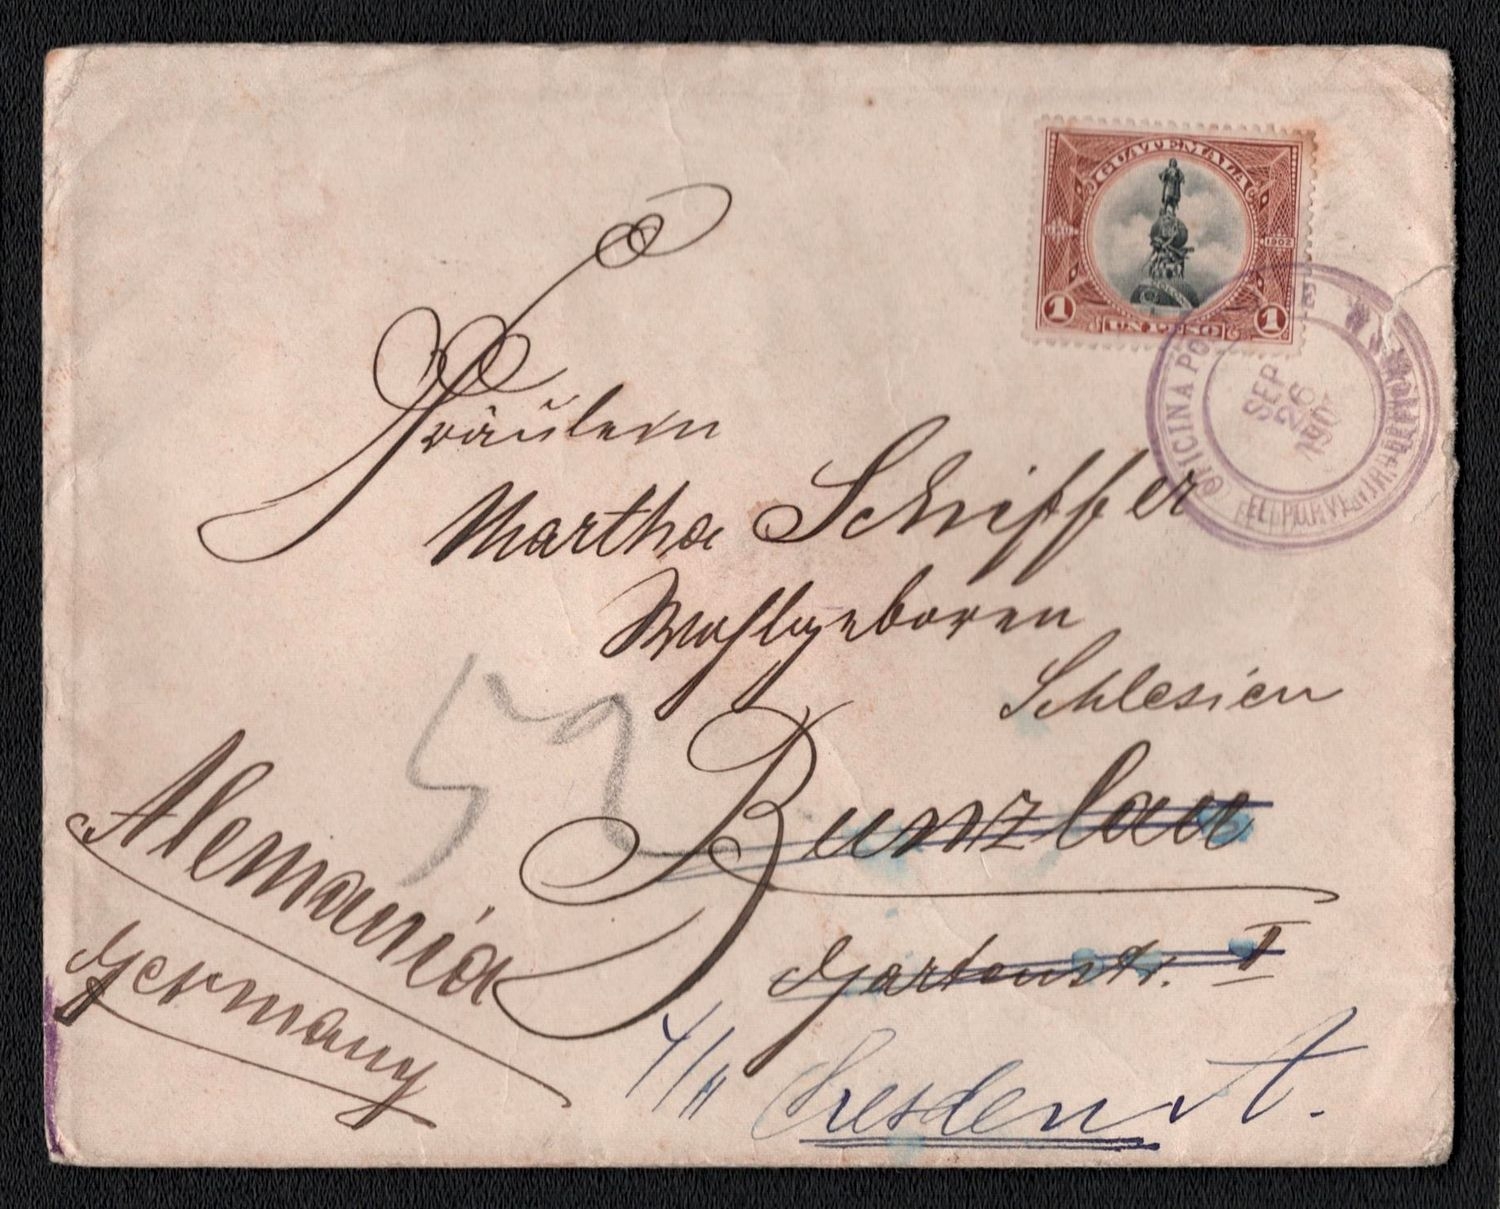 GUATEMALA
1902
1 UN PESO 1
OFICINA PO
SEP
26
190
Fräulein
Martha Schiffer
Wohlgeboren
Schlesien
52
Bunzlau
Gartenstr. I
Alemania
Germany
Dresden A.